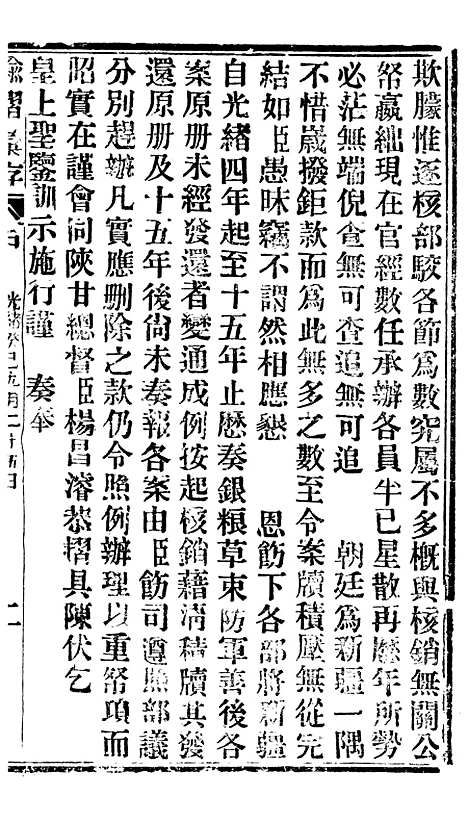 欺朦惟逐核部駮各節爲數究屬不多概與核銷無關公
帑嬴絀現在官經數任承辦各員半已星散再歷年所勢
必茫無端倪查無可查追無可追　朝廷爲新疆一隅
不惜歲撥鉅款而爲此無多之數至令案牘積壓無從完
結如臣愚昧竊不謂然相應懇　恩飭下各部將新疆
自光緒四年起至十五年止歷奏銀粮草束防軍善後各
案原册未經發還者變通成例按起核銷藉淸積牘其發
還原册及十五年後尙未奏報各案由臣飭司遵照部議
分別趕辦凡實應删除之款仍令照例辦理以重帑項而
昭實在謹會同陝甘總督臣楊昌濬恭摺具陳伏乞
皇上聖鑒訓示施行謹　奏奉
諭摺彙存　光緒癸巳　月二十五日　二